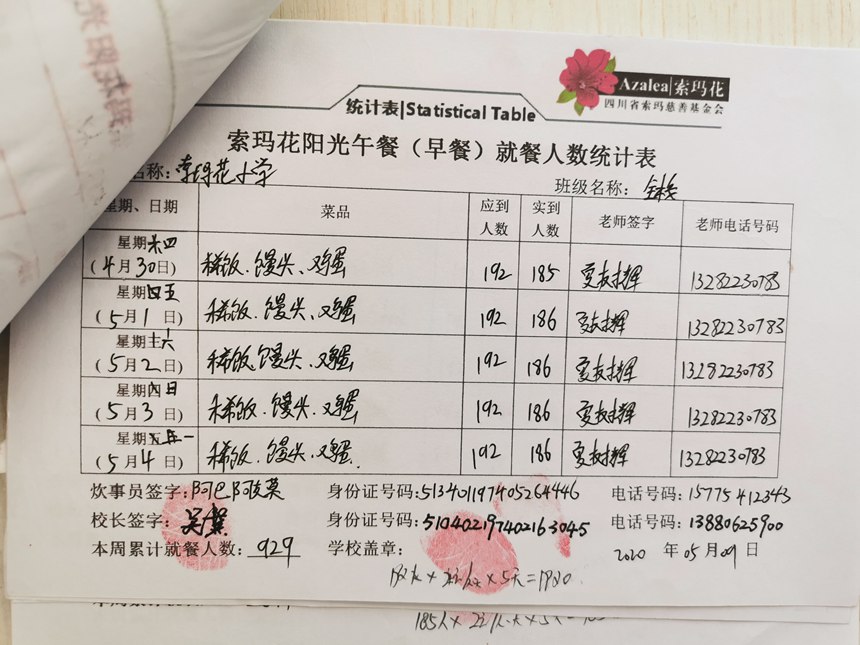 Azalea|索玛花
四川省索玛慈善基金会
统计表|Statistical Table
索玛花阳光午餐（早餐）就餐人数统计表
名称：索玛花小学
班级名称：全校
星期、日期 菜品 应到人数 实到人数 老师签字 老师电话号码
星期四 (4月30日) 稀饭.馒头、鸡蛋 192 185 13282230783
星期五 (5月1日) 稀饭.馒头、鸡蛋 192 186 13282230783
星期六 (5月2日) 稀饭.馒头、鸡蛋 192 186 13282230783
星期日 (5月3日) 稀饭.馒头.鸡蛋 192 186 13282230783
星期一 (5月4日) 稀饭.馒头、鸡蛋. 192 186 13282230783
炊事员签字：阿巴阿 身份证号码：513401197405264446 电话号码：15775412343
校长签字： 身份证号码：510402197402163045 电话号码：13880625900
本周累计就餐人数：929 学校盖章： 2020年05月09日
×5天=1920
185人×